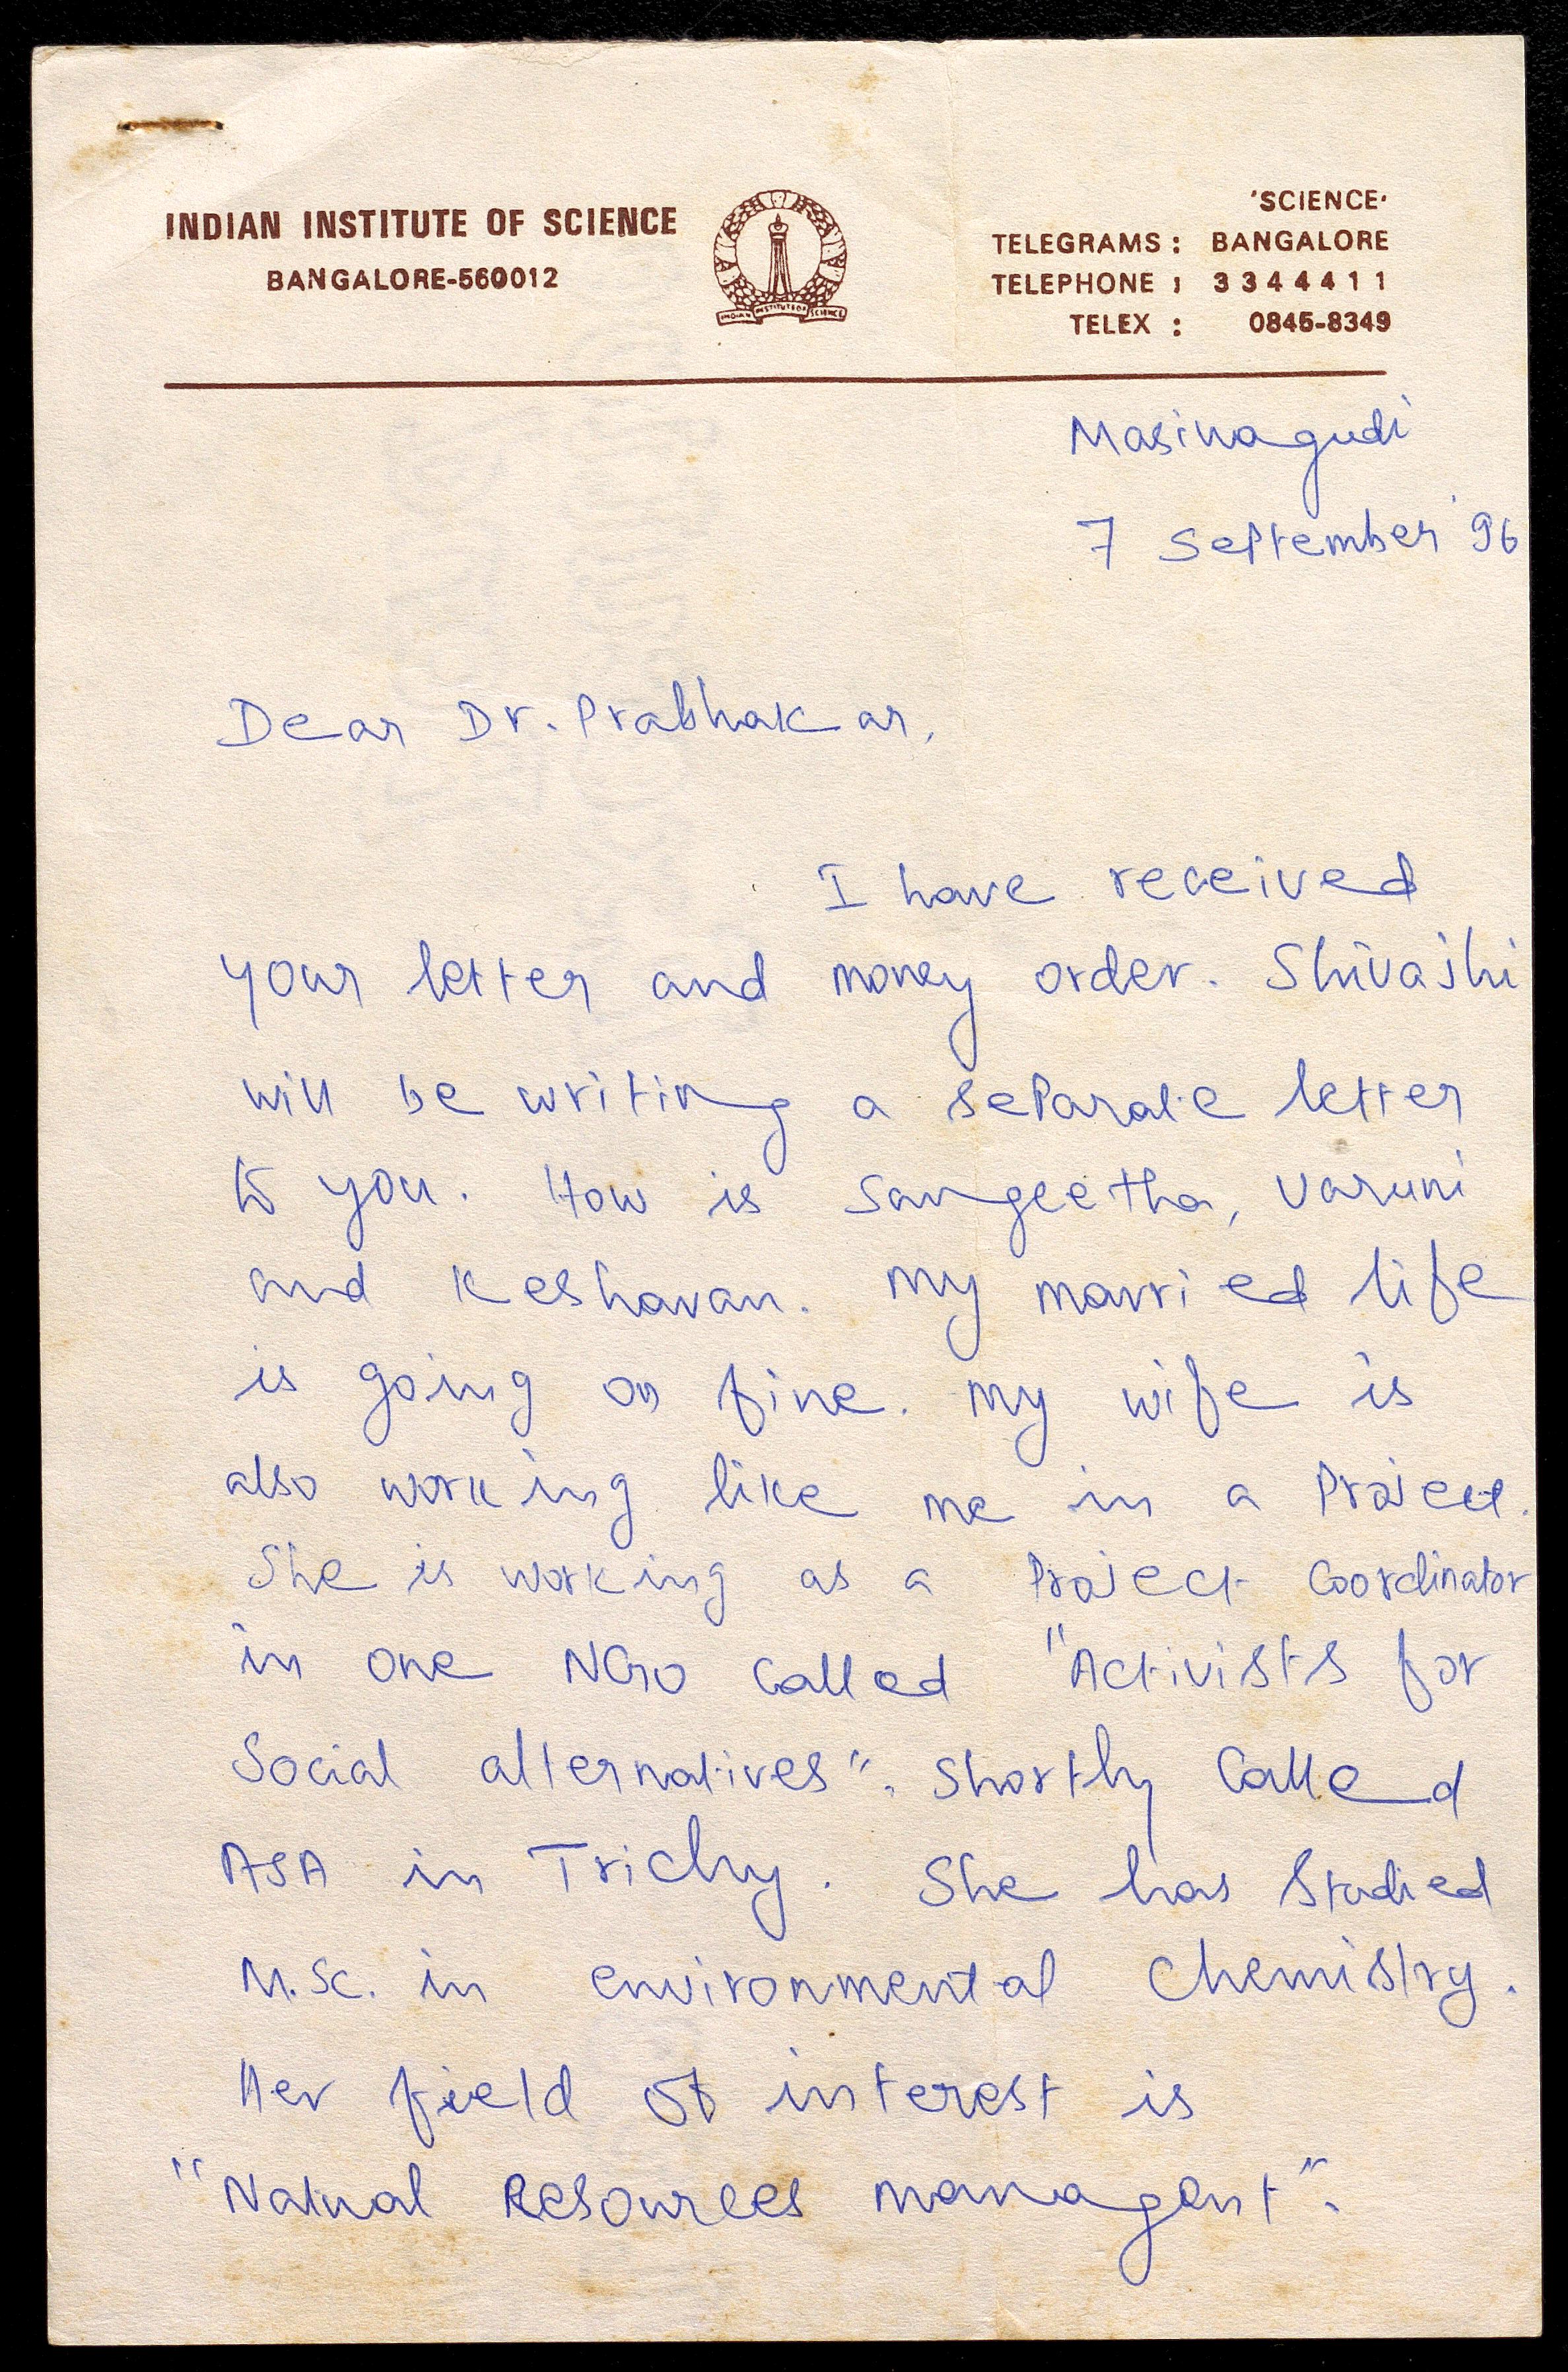 INDIAN INSTITUTE OF SCIENCE
BANGALORE-560012
INDIAN INSTITUTE OF SCIENCE
'SCIENCE'
TELEGRAMS : BANGALORE
TELEPHONE : 3344411
TELEX : 0845-8349
Masinagudi
7 September '96
Dear Dr. Prabhakar,
I have received
your letter and money order. Shivajhi
will be writing a separate letter
to you. How is Sangeetha, Varuni
and Keshavan. My married life
is going on fine. My wife is
also working like me in a Project.
She is working as a Project Coordinator
in one NGO called "Activists for
Social alternatives". Shortly Called
ASA in Trichy. She has Studied
M.Sc. in environmental Chemistry.
Her field of interest is
"Natural Resources managent".